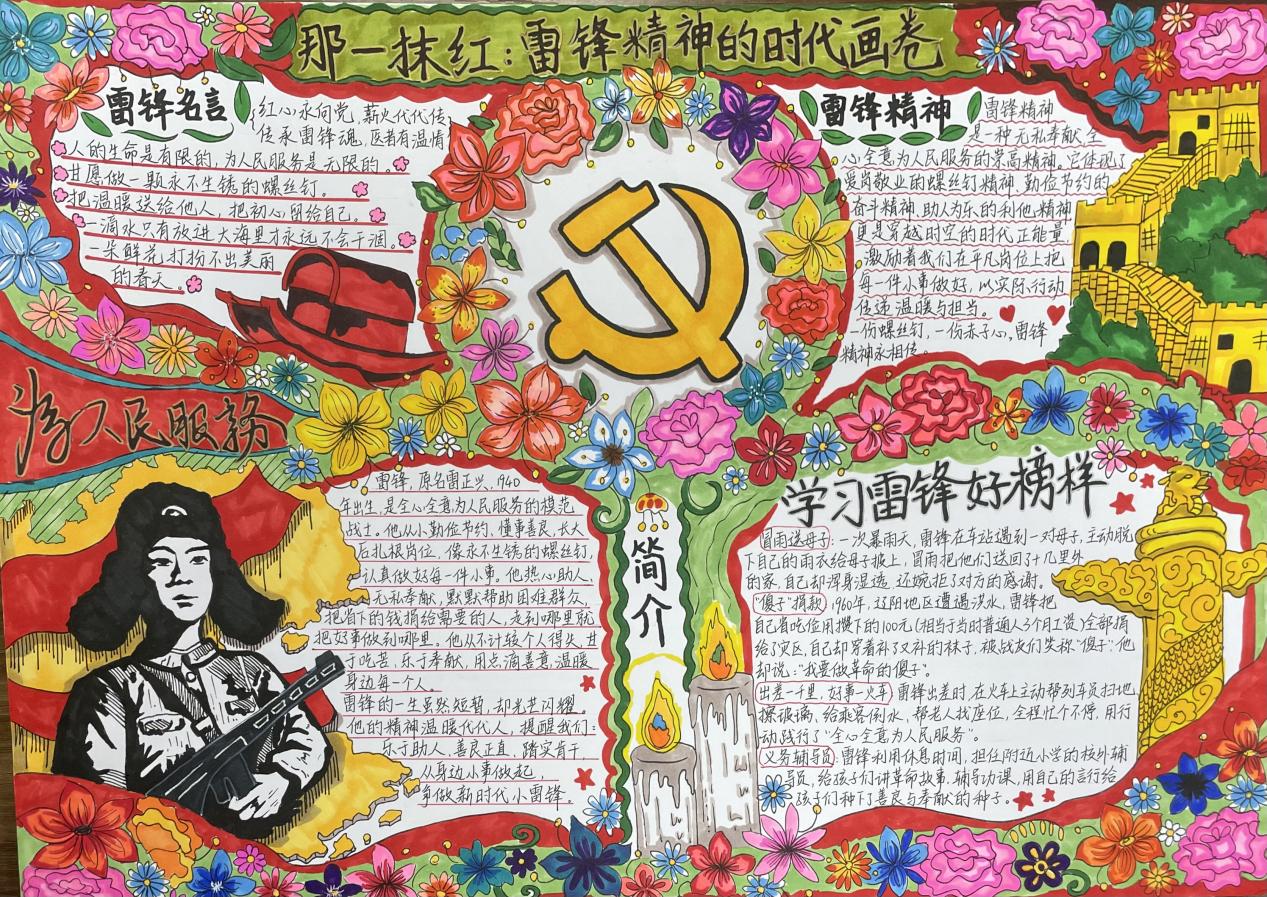 那一抹红:雷锋精神的时代画卷
雷锋名言
红心永向党,薪火代代传
传承雷锋魂,医者有温情
人的生命是有限的,为人民服务是无限的。
甘愿做一颗永不生锈的螺丝钉。
把温暖送给他人,把初心留给自己。
一滴水只有放进大海里才永远不会干涸。
一朵鲜花打扮不出美丽
的春天。
雷锋精神
雷锋精神
是一种无私奉献、全
心全意为人民服务的崇高精神。它体现了
爱岗敬业的螺丝钉精神、勤俭节约的
奋斗精神、助人为乐的利他精神
更是穿越时空的时代正能量
激励着我们在平凡岗位上把
每一件小事做好,以实际行动
传递温暖与担当。
一份螺丝钉,一份赤子心,雷锋
精神永相传。
为人民服務
雷锋,原名雷正兴,1940
年出生,是全心全意为人民服务的模范
战士。他从小勤俭节约、懂事善良,长大
后扎根岗位,像永不生锈的螺丝钉,
认真做好每一件小事。他热心助人、
无私奉献,默默帮助困难群众,
把省下的钱捐给需要的人,走到哪里就
把好事做到哪里。他从不计较个人得失,甘
于吃苦、乐于奉献,用点滴善意,温暖
身边每一个人。
雷锋的一生虽然短暂,却光芒闪耀。
他的精神温暖代代人,提醒我们:
乐于助人、善良正直、踏实肯干,
从身边小事做起,
争做新时代小雷锋。
简
介
学习雷锋好榜样
冒雨送母子:一次暴雨天,雷锋在车站遇到一对母子,主动脱
下自己的雨衣给母子披上,冒雨把他们送回了十几里外
的家,自己却浑身湿透,还婉拒了对方的感谢。
"傻子"捐款 1960年,辽阳地区遭遇洪水,雷锋把
自己省吃俭用攒下的100元(相当于当时普通人3个月工资)全部捐
给了灾区,自己却穿着补了又补的袜子,被战友们笑称"傻子"他
却说:"我要做革命的傻子"。
出差一千里,好事一火车 雷锋出差时,在火车上主动帮列车员扫地、
擦玻璃,给乘客倒水,帮老人找座位,全程忙个不停,用行
动践行了"全心全意为人民服务"。
义务辅导员 雷锋利用休息时间,担任附近小学的校外辅
导员,给孩子们讲革命故事、辅导功课,用自己的言行给
孩子们种下善良与奉献的种子。